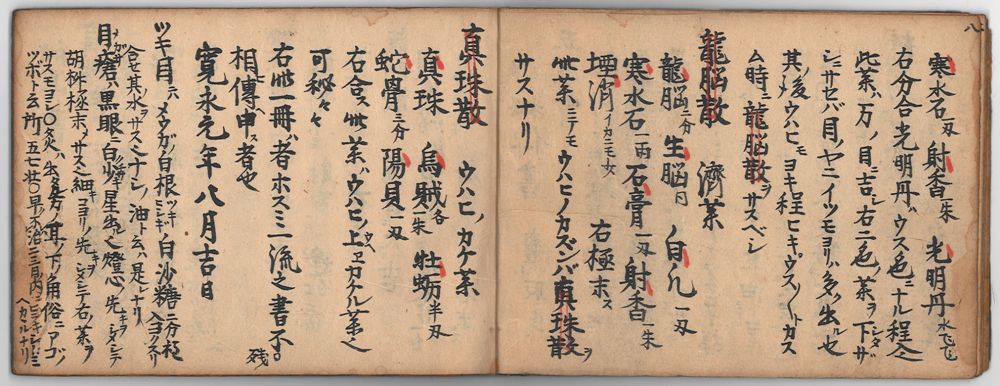 八
寒水石 一匁 射香 一朱 光明丹 水飞
右分合光明丹ガウス色ニナル程合
此薬ハ万ノ目ニ吉シ右ニ色ノ薬ヲ下サ
シニサセバ目ノヤニイツモヨリハ多ク出ル也
其後ウハヒモヨキ程ヒキウスノトカス
ム時ニ龍脳散ヲサスベシ
龍脳散 濟薬
龍脳 三分 生脳 白凡 一匁
寒水石 一両 石膏 一匁 射香 一朱
堙消 イカニモ 右極末ス
此薬ニテモウハヒノカズンバ真珠散ヲ
サスナリ
真珠散 ウハヒノカケ薬
真珠 烏賊 各一朱 牡蛎 半匁
蛇骨 三分 陽貝 一匁
右合ス此薬ハウハヒノ上ヱカケル薬也
可秘々々
右此一冊ハ者ホスミ一流之書不残
相傳申ス者也
寛永元年八月吉日
ツキ目ニハメウガノ白根ツキ 白沙糖 二分
合其水ヲサスミナシ油ト云ハ是ナリ
目瘡ハ黒眼ニ白キ星出ル也燈心ノ先ヲ
胡桝極末メサス之細キコヨリノ先ヲ 右薬ヲ
サスモヨシ〇灸ハ 生 多分ノ耳ノ下ノ角俗ニアゴノ
ツボト云所五七廿〇早ク不治二三月内ニ
ヘカルナリ